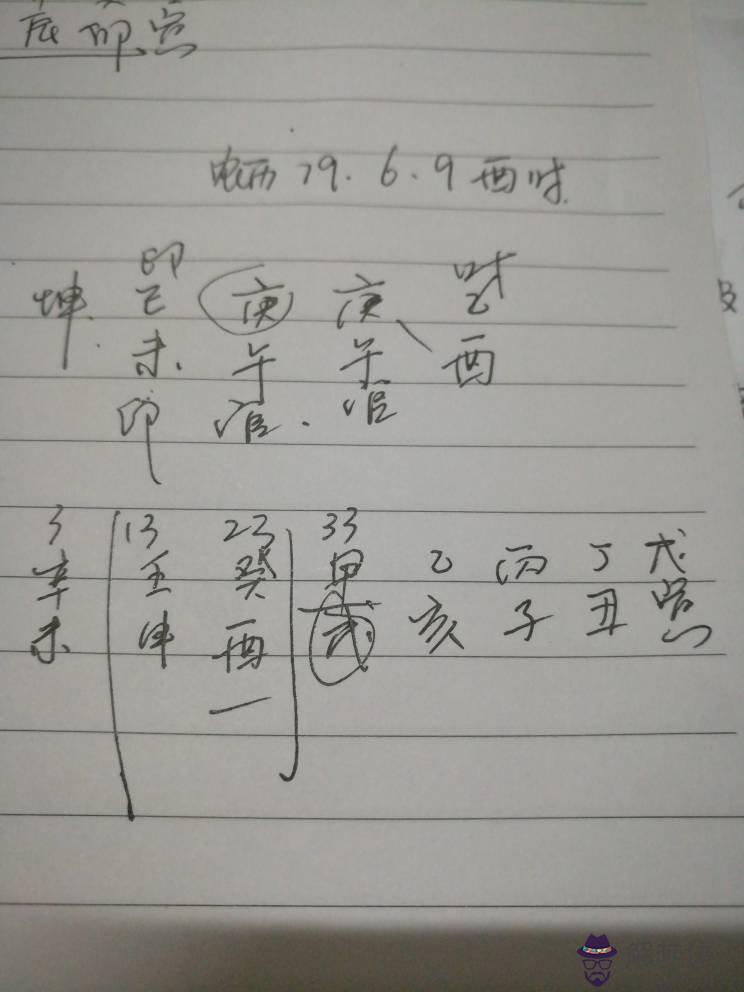 辰 卯 寅
79.6.9 酉时
印 财
坤 己 庚 庚 乙
未 午 午 酉
印 官 官
3 13 23 33
辛 壬 癸 甲 乙 丙 丁 戊
未 申 酉 戌 亥 子 丑 寅